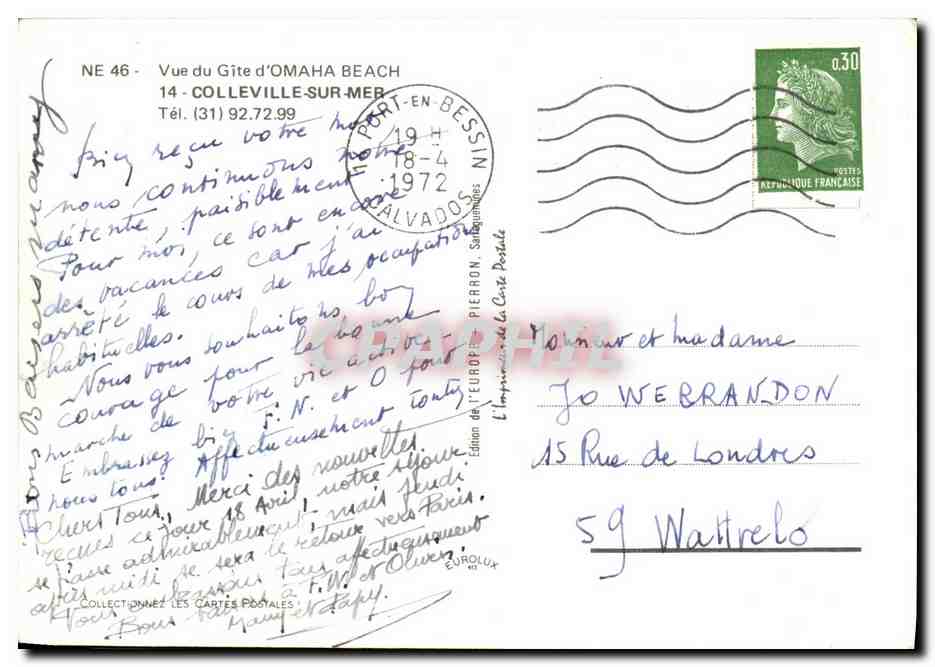 NE 46 - Vue du Gîte d'OMAHA BEACH
14 - COLLEVILLE-SUR-MER
Tél. (31) 92.72.99
14 PORT-EN-BESSIN
19 H
18-4
1972
CALVADOS
0,30
POSTES
REPUBLIQUE FRANÇAISE
Bien reçu votre mot
nous continuons notre
détente, paisiblement
Pour moi, ce sont encore
des vacances car j'ai
arrêté le cours de mes occupations
habituelles.
Nous vous souhaitons bon
courage pour la bonne
marche de votre vie active.
Embrassez bien F. N. et O pour
nous tous. Affectueusement tonty
Chers Tous, Merci des nouvelles
reçues ce jour 18 Avril, notre séjour
se passe admirablement, mais jeudi
après midi se sera le retour vers Paris.
Vous embrassons tous affectueusement
Bons baisers à F. N. et Olivier.
Mamy et Papy.
Bons Baisers mamy
COLLECTIONNEZ LES CARTES POSTALES
EUROLUX
Edition de l'EUROPE - PIERRON, Sarreguemines
L'Imprimerie de la Carte Postale
CPAPHIL
Monsieur et Madame
JO WEBRANDON
15 Rue de Londres
59 Wattrelo